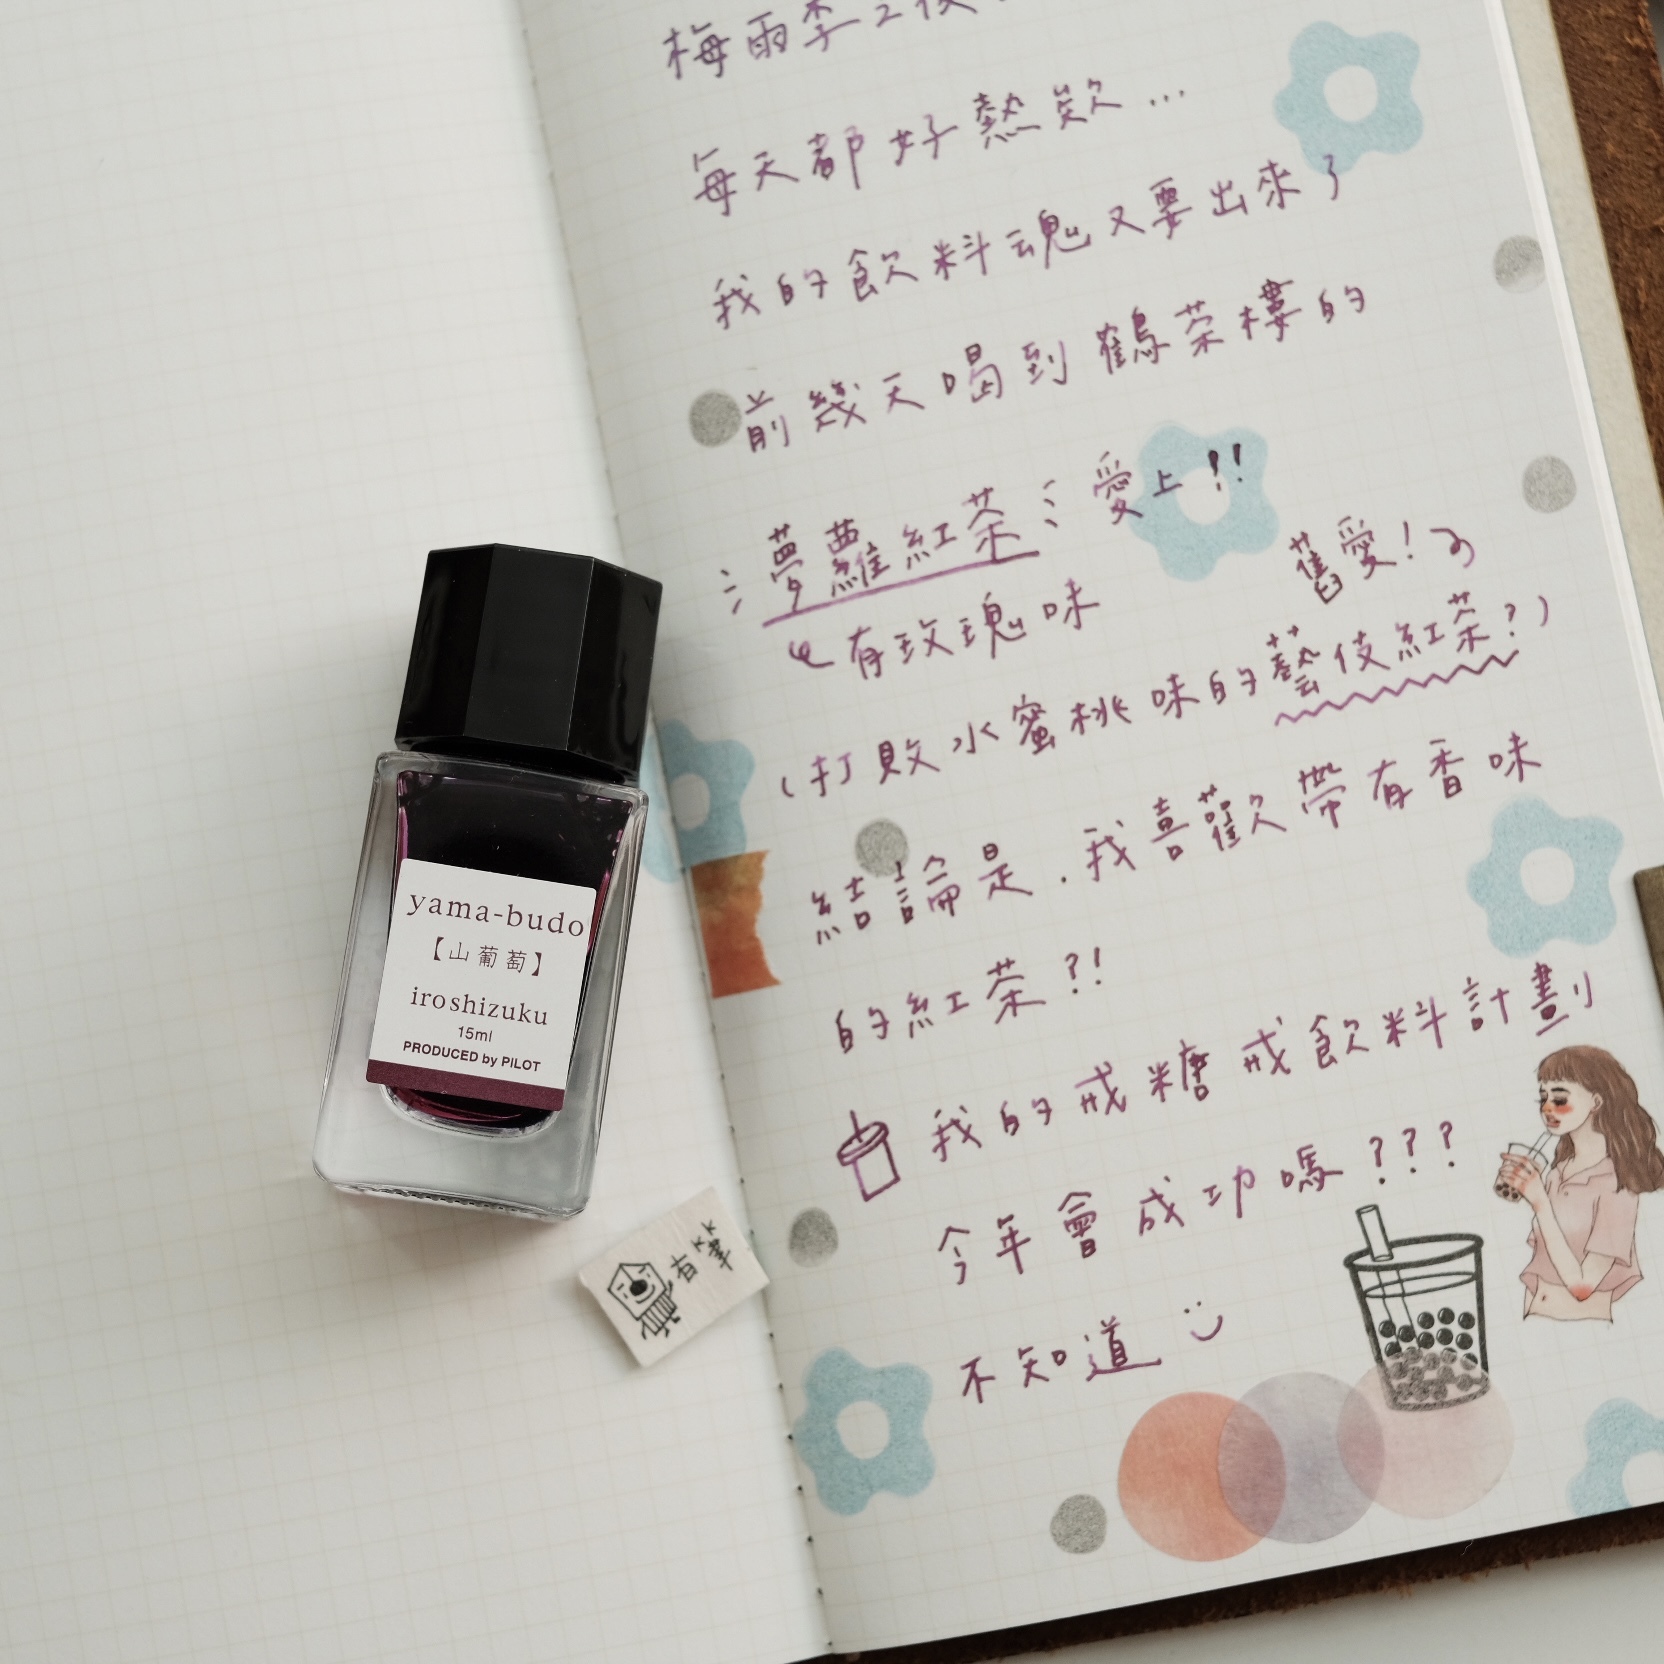 梅雨季之後
每天都好熱欸...
我的飲料魂又要出來了
前幾天喝到鶴茶樓的
夢蘿紅茶 愛上!!
有玫瑰味
舊愛!
(打敗水蜜桃味的藝伎紅茶?)
結論是.我喜歡帶有香味
的紅茶?!
我的戒糖戒飲料計劃
今年會成功嗎???
不知道
yama-budo
【山葡萄】
iroshizuku
15ml
PRODUCED by PILOT
有筆